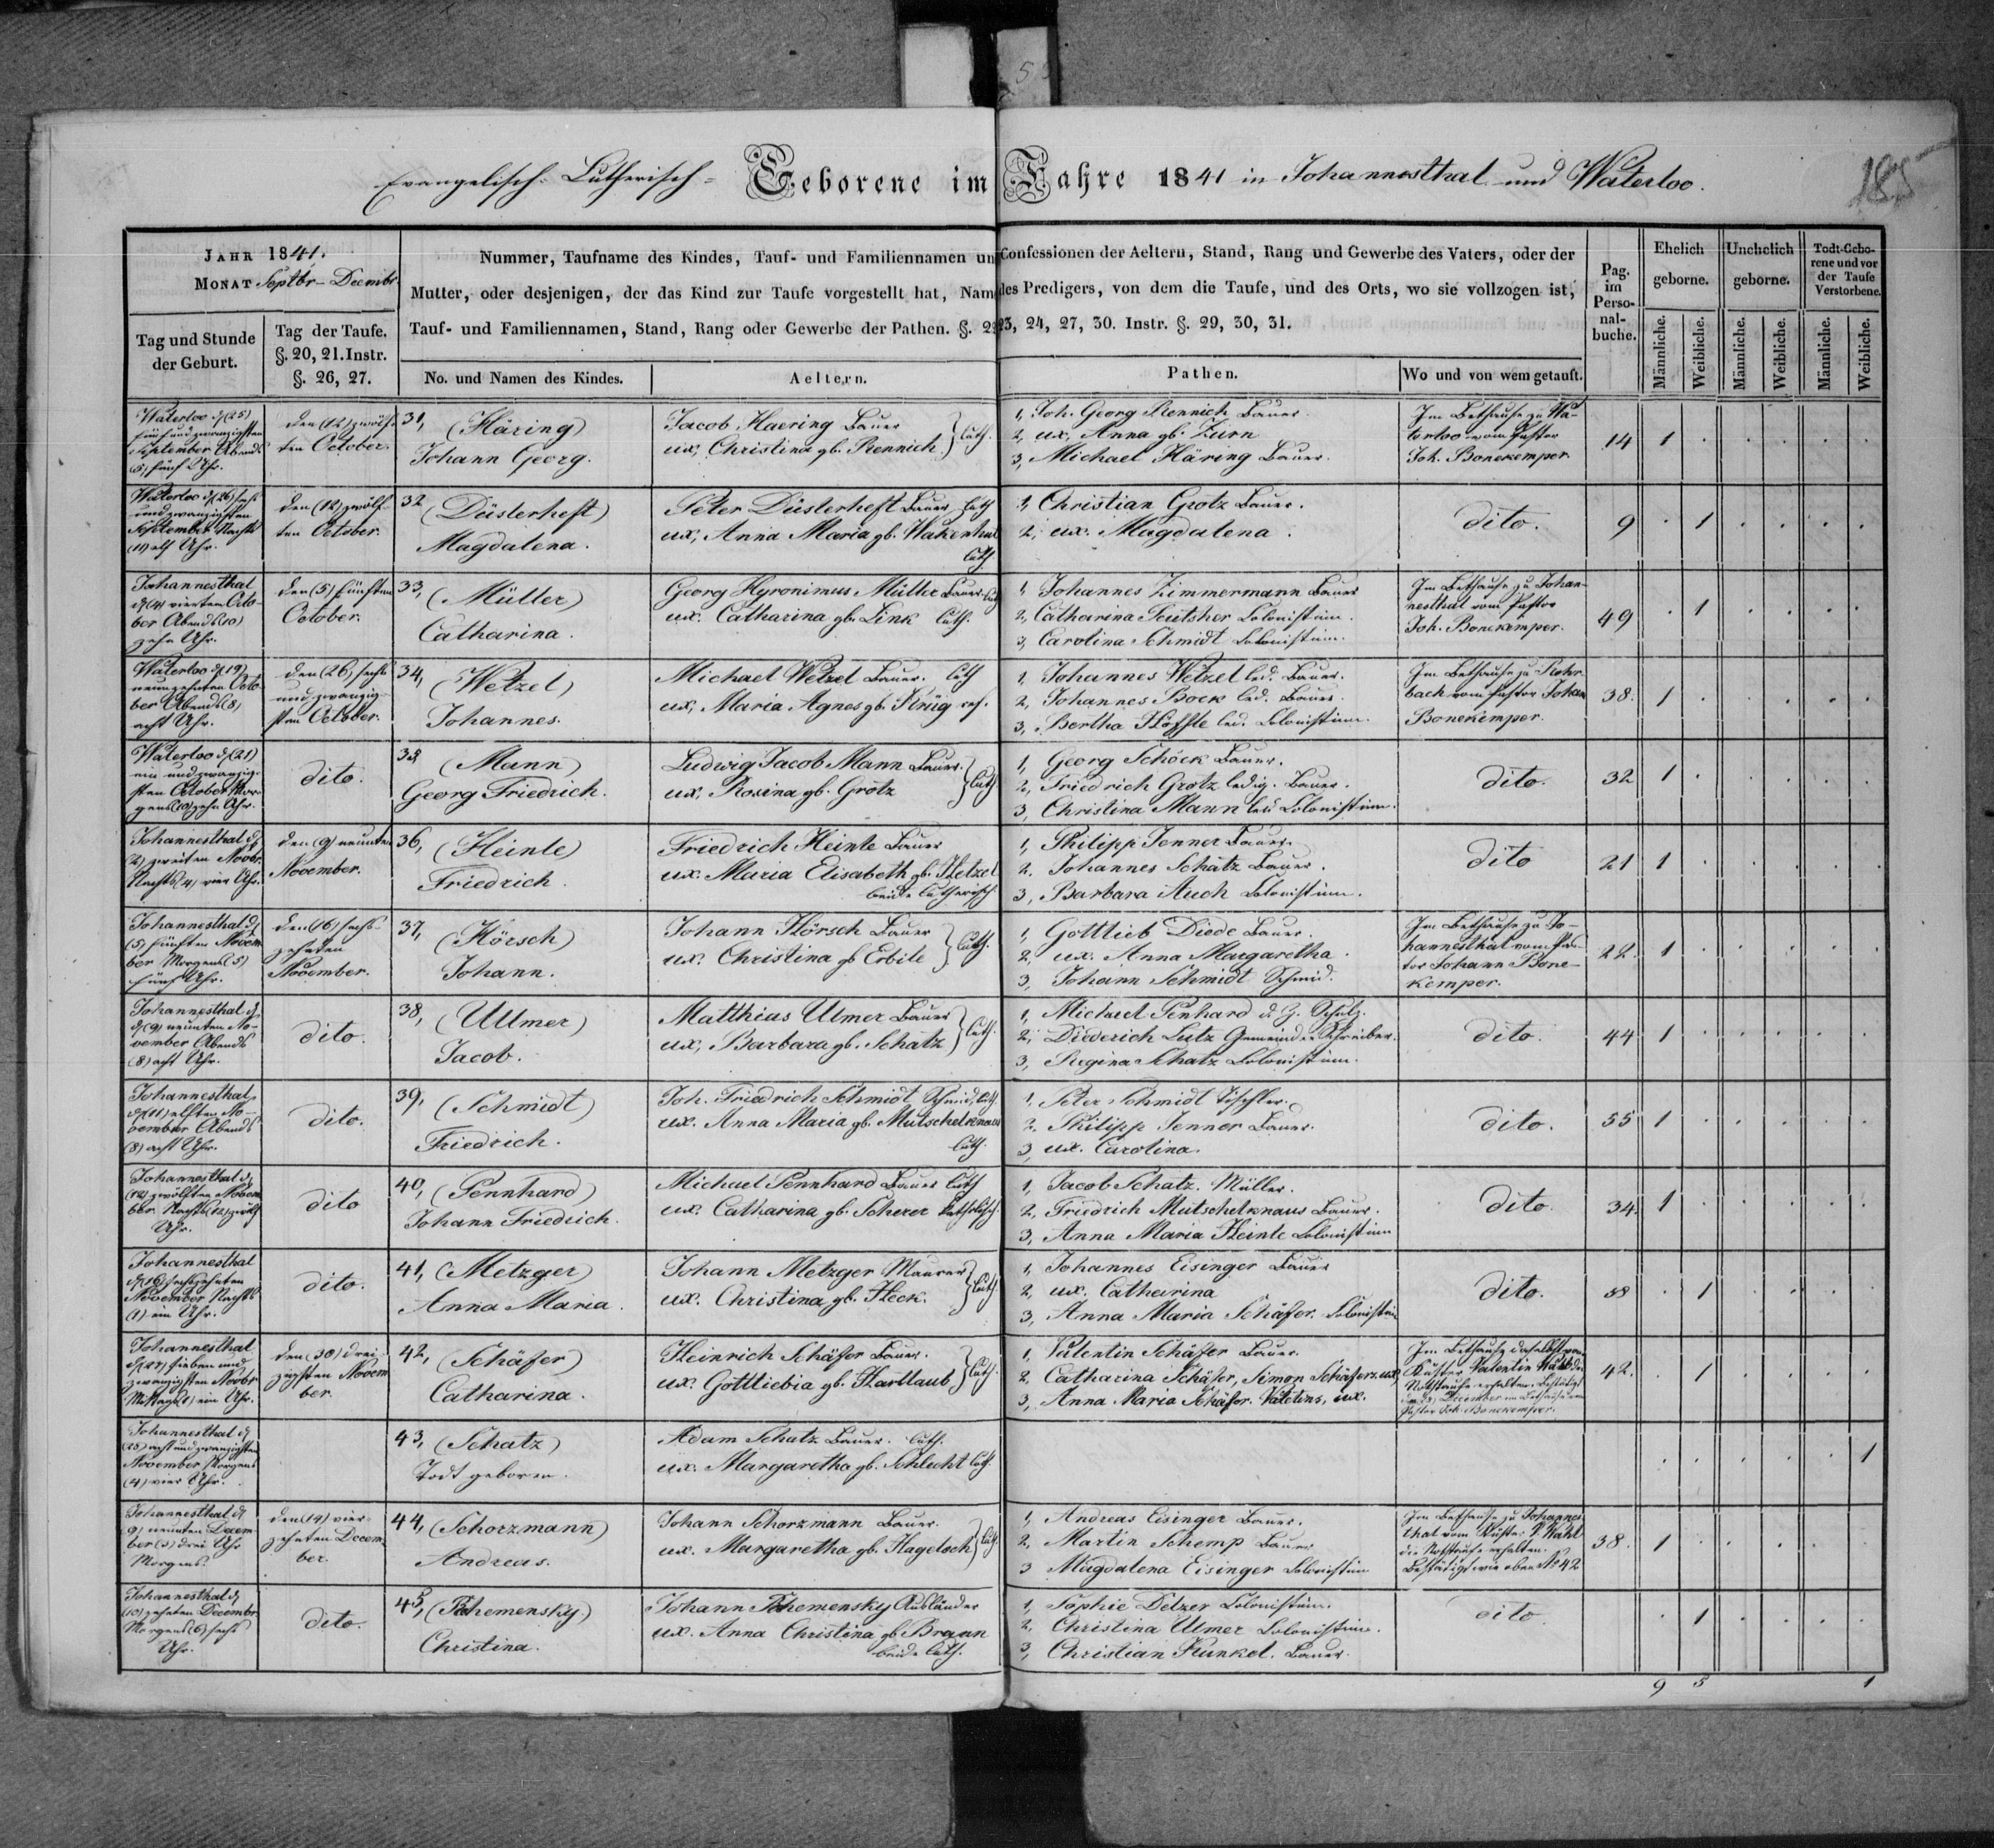 5
Evangelisch-Lutherisch-Geborene im Jahre 1841 in Johannesthal und Waterloo.
185
Jahr 1841.
Monat Septbr - Decembr
Tag und Stunde der Geburt.
Tag der Taufe. §. 20, 21. Instr. §. 26, 27.
Nummer, Taufname des Kindes, Tauf- und Familiennamen und Confessionen der Aeltern, Stand, Rang und Gewerbe des Vaters, oder der
Mutter, oder desjenigen, der das Kind zur Taufe vorgestellt hat, Name des Predigers, von dem die Taufe, und des Orts, wo sie vollzogen ist,
Tauf- und Familiennamen, Stand, Rang oder Gewerbe der Pathen. §. 23, 24, 27, 30. Instr. §. 29, 30, 31.
No. und Namen des Kindes.
Aeltern.
Pathen.
Wo und von wem getauft.
Pag. im Perso-nal-buche.
Ehelich geborne.
Unehelich geborne.
Todt-Gebo-rene und vor der Taufe Verstorbene.
Männliche. Weibliche. Männliche. Weibliche. Männliche. Weibliche.
Waterloo d (25)
fünf und zwanzigsten
September Abends
(5) fünf Uhr.
den (12) zwölf-
ten October.
31, (Häring)
Johann Georg.
Jacob Haering Bauer
ux, Christina gb. Rennich. } luth.
1, Joh. Georg Rennich Bauer.
2, ux, Anna gb. Zürn
3, Michael Häring Bauer.
Im Bethause zu Wa-
terloo vom Pastor
Joh. Bonekemper.
14 1 . . . . .
Waterloo d (26) sechs
und zwanzigsten
September Nachts
(11) elf Uhr.
den (12) zwölf-
ten October.
32 (Düsterheft)
Magdalena.
Peter Düsterheft Bauer luth
ux, Anna Maria gb. Wakenhut
luth
1, Christian Grotz Bauer.
2, ux. Magdalena.
dito.
9 . 1 . . . .
Johannesthal
d (4) vierten Octo-
ber Abends (10)
zehn Uhr.
den (5) fünften
October.
33, (Müller)
Catharina.
Georg Hyronimus Müller Bauer luth
ux. Catharina gb. Link luth.
1, Johannes Zimmermann Bauer
2, Catharina Colonistin.
3, Carolina Schmidt Colonistin.
Im Bethause zu Johan-
nesthal vom Pastor
Joh. Bonekemper.
49 . 1 . . . .
Waterloo d (19)
neunzehnten Octo-
ber Abends (8)
acht Uhr.
den (26) sechs
und zwanzig-
sten October.
34, (Wetzel)
Johannes.
Michael Wetzel Bauer. luth
ux, Maria Agnes gb. König ref.
1, Johannes Wetzel led. Bauer.
2, Johannes Bock led. Bauer.
3, Bertha Höffle led. Colonistin.
Im Bethause zu Rohr-
bach vom Pastor Johann
Bonekemper.
38. 1 . . . . .
Waterloo d (21)
ein und zwanzig-
sten October Mor-
gens (10) zehn Uhr.
dito.
35, (Mann)
Georg Friedrich.
Ludwig Jacob Mann Bauer.
ux, Rosina gb. Grotz } luth.
1, Georg Schöck Bauer.
2, Friedrich Grotz ledig. Bauer.
3, Christina Mann led Colonistin.
dito.
32 1 . . . . .
Johannesthal d
(2) zweiten Novbr.
Nachts (4) vier Uhr.
den (9) neunten
November.
36, (Heinle)
Friedrich.
Friedrich Heinle Bauer
ux. Maria Elisabeth gb. Hetzel
beide lutherisch.
1, Philipp Jenner Bauer.
2, Johannes Schatz Bauer.
3, Barbara Auch Colonistin.
dito
21 1 . . . . .
Johannesthal d
(5) fünften Novem-
ber Morgens (5)
fünf Uhr.
den (16) sechs-
zehnten
November.
37, (Hörsch)
Johann.
Johann Hörsch Bauer
ux. Christina gb Erbile } luth.
1, Gottlieb Diede Bauer.
2, ux. Anna Margaretha.
3, Johann Schmidt Schmid.
Im Bethause zu Jo-
hannesthal vom Pas-
tor Johann Bone-
kemper.
22. 1 . . . . .
Johannesthal d.
d (9) neunten No-
vember Abends
(8) acht Uhr.
dito.
38, (Ullmer)
Jacob.
Matthias Ulmer Bauer
ux, Barbara gb. Schatz } luth.
1, Michael Penhard d. Z. Schulz.
2, Diederich Lutz Gemeinde Schreiber.
3, Regina Schatz Colonistin.
dito.
44 1 . . . . .
Johannesthal
d (11) elften No-
vember Abends
(8) acht Uhr.
dito.
39, (Schmidt)
Friedrich.
Joh. Friedrich Schmidt Schmid, luth
ux. Anna Maria gb. Mutschelknaus
luth.
1, Peter Schmidt Tischler.
2. Philipp Jenner Bauer.
3, ux. Carolina.
dito.
55 1 . . . . .
Johannesthal d
(12) zwölften Novem-
ber Nachts (12) zwölf
Uhr.
dito
40, (Pennhard)
Johann Friedrich.
Michael Pennhard Bauer luth
ux. Catharina gb. Scherer katholisch.
1, Jacob Schatz. Müller.
2, Friedrich Mutschelknaus Bauer.
3, Anna Maria Heinle Colonistin
dito.
34. 1 . . . . .
Johannesthal
d (16) sechszehnten
November Nachts
(1) ein Uhr.
dito.
41, (Metzger)
Anna Maria.
Johann Metzger Maurer
ux. Christina gb. Heck. } luth.
1, Johannes Eisinger Bauer
2, ux. Catharina
3, Anna Maria Schäfer. Colonistin
dito.
58 . 1 . . . .
Johannesthal
d (27) sieben und
zwanzigsten Novbr
Mittags (1) ein Uhr.
den (30) drei-
zigsten Novem-
ber.
42, (Schäfer)
Catharina.
Heinrich Schäfer Bauer.
ux. Gottliebia gb. Hartlaub } luth.
1, Valentin Schäfer Bauer.
2, Catharina Schäfer, Simon Schäfers. ux,
3, Anna Maria Schäfer. Valetins, ux.
Im Bethause daselbst vom
Küster Valentin Wahl die
Nothtaufe erhalten. Bestätigt
December im Bethause vom
Pastor Joh. Bonekemper.
42. . 1 . . . .
Johannesthal d
(28) acht und zwanzigsten
November Morgens
(4) vier Uhr.
43, (Schatz)
Todt geboren.
Adam Schatz Bauer. luth.
ux. Margaretha gb. Schlecht luth.
. . . . . 1
Johannesthal d
(9) neunten Decem-
ber (3) drei Uhr
Morgens.
den (14) vier-
zehnten Decem-
ber.
44, (Schorzmann)
Andreas.
Johann Schorzmann Bauer.
ux. Margaretha gb. Hageloch } luth.
1, Andreas Eisinger Bauer.
2, Martin Schemp Bauer
3 Magdalena Eisinger Colonistin
Im Bethause zu Johannes-
thal vom Küster V. Wahl
die Nothtaufe erhalten.
Bestätigt wie oben No 42
38. 1 . . . . .
Johannesthal d
(10) zehnten Decembr.
Morgens (6) sechs
Uhr.
dito.
45,
Christina.
Johann Ausländer
ux. Anna Christina gb Braun
beide luth.
1, Sophie Delzer Colonistin.
2, Christina Ulmer Colonistin.
3, Christian Kunkel. Bauer.
dito
. 1 . . . .
9 5 1